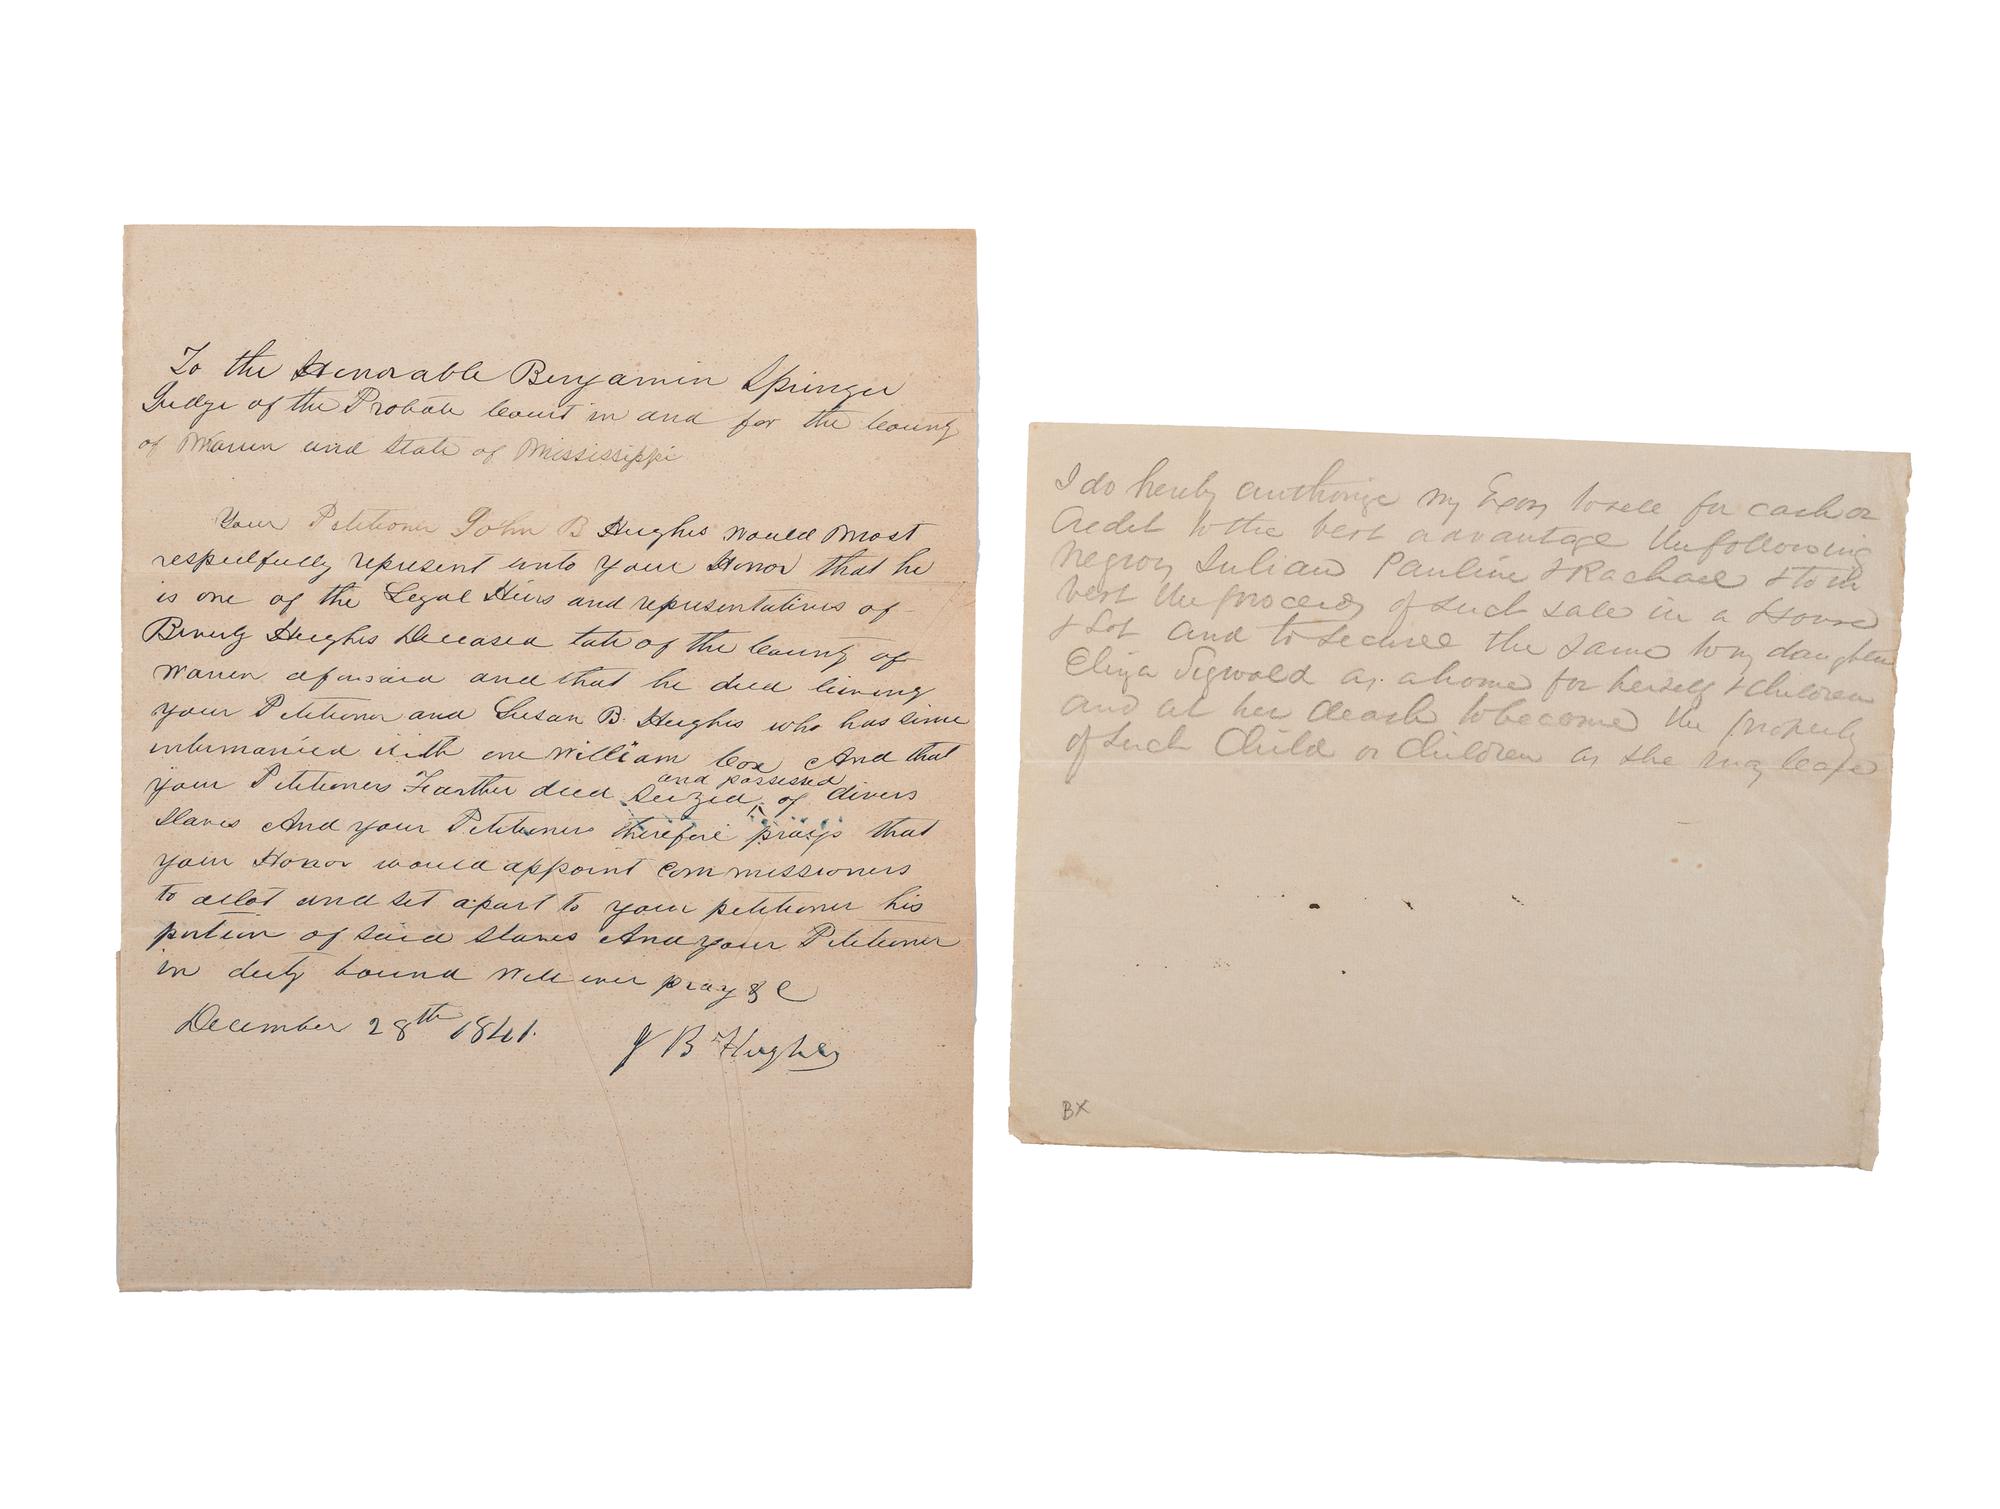 To the Honorable Benjamin Springer
Judge of the Probate Court in and for the County
of Warren and State of Mississippi
Your Petitioner John B Hughes would most
respectfully represent unto your Honor that he
is one of the Legal Heirs and representatives of
Beverly Hughes Deceased late of the County of
Warren aforesaid and that he died leaving
your Petitioner and Susan B. Hughes who has since
intermarried with one William Cox And that
your Petitioners Farther died Seized and possessed of divers
Slaves And your Petitioners therefore prays that
your Honor would appoint Commissioners
to allot and set apart to your petitioner his
portion of said Slaves And your Petitioner
in duty bound Will ever pray &C
December 28th 1841.
J B Hughes
I do hereby authorize my Exors to sell for cash or
Credit to the best advantage the following
Negroes Julian Pauline & Rachael & to in
vest the proceeds of such sale in a House
& Lot and to secure the same to my daughter
Eliza Sigwald as a home for herself & children
and at her death to become the property
of such Child or Children as she may leave
BX